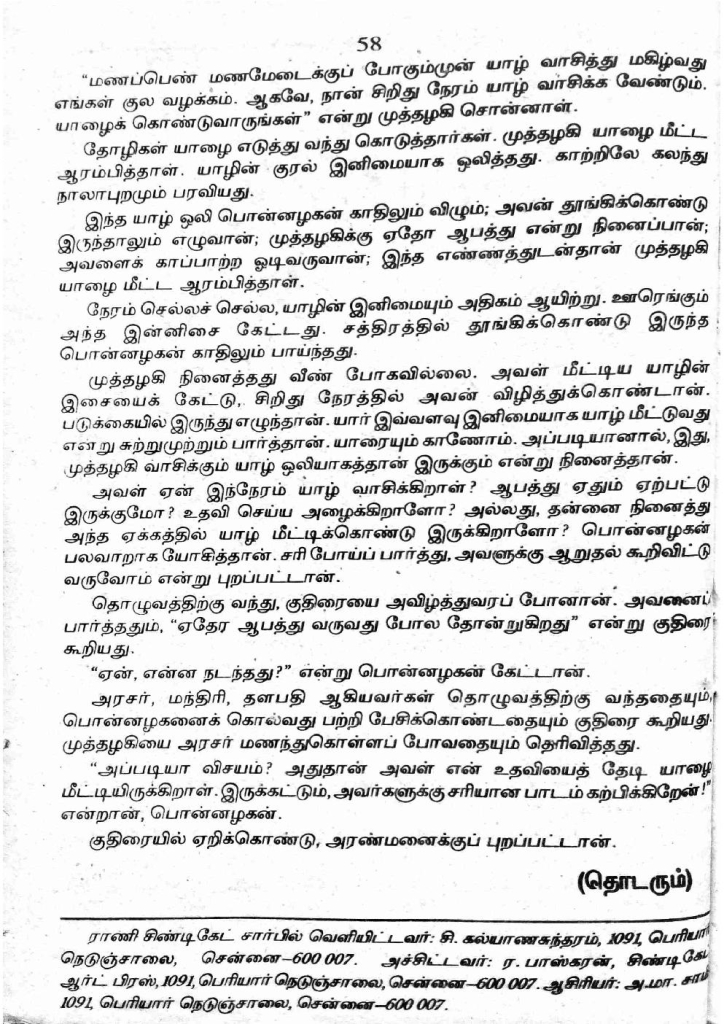 58
“மணப்பெண் மணமேடைக்குப் போகும்முன் யாழ் வாசித்து மகிழ்வது
எங்கள் குல வழக்கம். ஆகவே, நான் சிறிது நேரம் யாழ் வாசிக்க வேண்டும்.
யாழைக் கொண்டுவாருங்கள்” என்று முத்தழகி சொன்னாள்.
தோழிகள் யாழை எடுத்து வந்து கொடுத்தார்கள். முத்தழகி யாழை மீட்ட
ஆரம்பித்தாள். யாழின் குரல் இனிமையாக ஒலித்தது. காற்றிலே கலந்து
நாலாபுறமும் பரவியது.
இந்த யாழ் ஒலி பொன்னழகன் காதிலும் விழும்; அவன் தூங்கிக்கொண்டு
இருந்தாலும் எழுவான்; முத்தழகிக்கு ஏதோ ஆபத்து என்று நினைப்பான்;
அவளைக் காப்பாற்ற ஓடிவருவான்; இந்த எண்ணத்துடன்தான் முத்தழகி
யாழை மீட்ட ஆரம்பித்தாள்.
நேரம் செல்லச் செல்ல, யாழின் இனிமையும் அதிகம் ஆயிற்று. ஊரெங்கும்
அந்த இன்னிசை கேட்டது. சத்திரத்தில் தூங்கிக்கொண்டு இருந்த
பொன்னழகன் காதிலும் பாய்ந்தது.
முத்தழகி நினைத்தது வீண் போகவில்லை. அவள் மீட்டிய யாழின்
இசையைக் கேட்டு, சிறிது நேரத்தில் அவன் விழித்துக்கொண்டான்.
படுக்கையில் இருந்து எழுந்தான். யார் இவ்வளவு இனிமையாக யாழ் மீட்டுவது
என்று சுற்றுமுற்றும் பார்த்தான். யாரையும் காணோம். அப்படியானால், இது,
முத்தழகி வாசிக்கும் யாழ் ஒலியாகத்தான் இருக்கும் என்று நினைத்தான்.
அவள் ஏன் இந்நேரம் யாழ் வாசிக்கிறாள்? ஆபத்து ஏதும் ஏற்பட்டு
இருக்குமோ? உதவி செய்ய அழைக்கிறாளோ? அல்லது, தன்னை நினைத்து
அந்த ஏக்கத்தில் யாழ் மீட்டிக்கொண்டு இருக்கிறாளோ? பொன்னழகன்
பலவாறாக யோசித்தான். சரி போய்ப் பார்த்து, அவளுக்கு ஆறுதல் கூறிவிட்டு
வருவோம் என்று புறப்பட்டான்.
தொழுவத்திற்கு வந்து, குதிரையை அவிழ்த்துவரப் போனான். அவனைப்
பார்த்ததும், “ஏதேர ஆபத்து வருவது போல தோன்றுகிறது” என்று குதிரை
கூறியது.
“ஏன், என்ன நடந்தது?” என்று பொன்னழகன் கேட்டான்.
அரசர், மந்திரி, தளபதி ஆகியவர்கள் தொழுவத்திற்கு வந்ததையும்,
பொன்னழகனைக் கொல்வது பற்றி பேசிக்கொண்டதையும் குதிரை கூறியது.
முத்தழகியை அரசர் மணந்துகொள்ளப் போவதையும் தெரிவித்தது.
“அப்படியா விசயம்? அதுதான் அவள் என் உதவியைத் தேடி யாழை
மீட்டியிருக்கிறாள். இருக்கட்டும், அவர்களுக்கு சரியான பாடம் கற்பிக்கிறேன்!”
என்றான், பொன்னழகன்.
குதிரையில் ஏறிக்கொண்டு, அரண்மனைக்குப் புறப்பட்டான்.
(தொடரும்)
ராணி சிண்டிகேட் சார்பில் வெளியிட்டவர்: சி. கல்யாணசுந்தரம், 1091, பெரியார்
நெடுஞ்சாலை, சென்னை–600 007. அச்சிட்டவர்: ர. பாஸ்கரன், சிண்டிகேட்
ஆர்ட் பிரஸ், 1091, பெரியார் நெடுஞ்சாலை, சென்னை–600 007. ஆசிரியர்: அ.மா. சாமி
1091, பெரியார் நெடுஞ்சாலை, சென்னை–600 007.